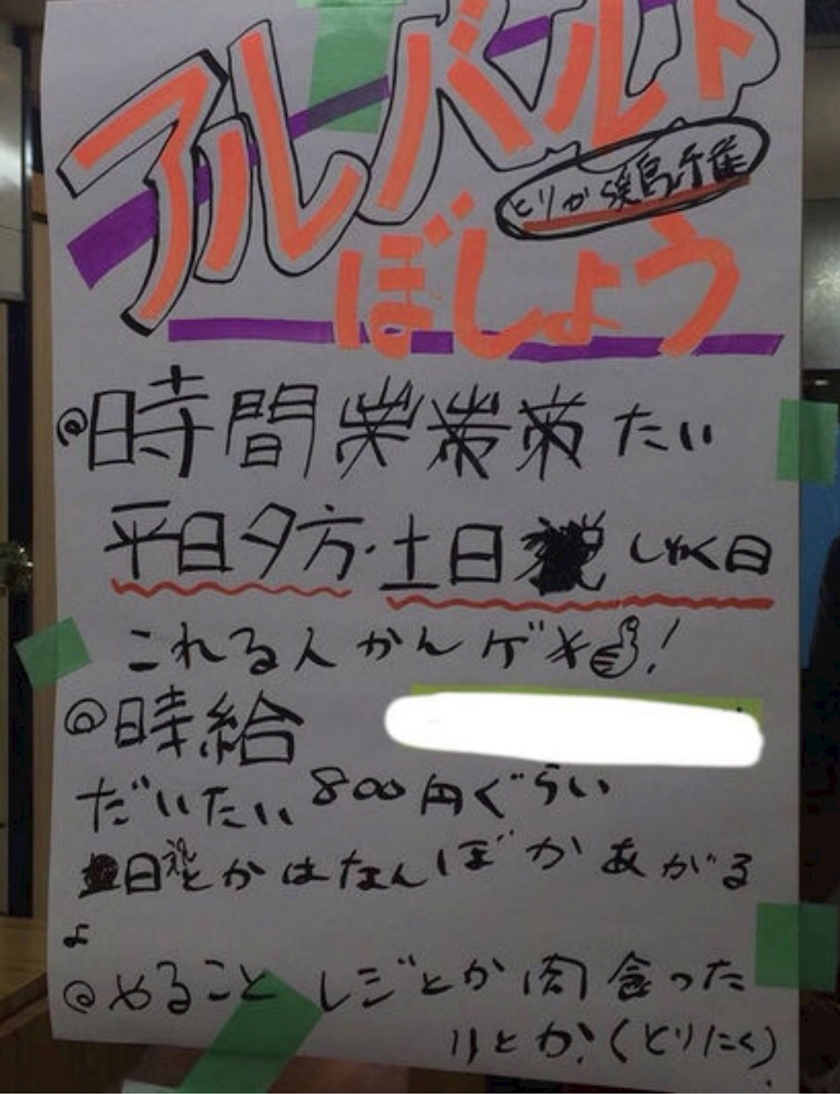 アルバルト
ぼしょう
@時間 たい
平日夕方・土日 しゅく日
これる人かんゲキ!
@時給
だいたい800円ぐらい
日祝とかはなんぼかあがる
よ
@やること レジとか肉食った
りとか?(とりにく)